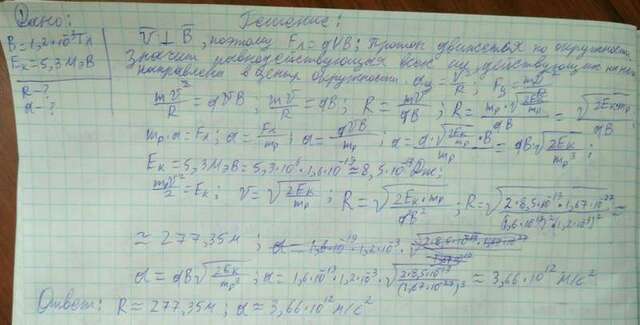 ① Дано:
B=1,2·10⁻³Тл
Eк=5,3МэВ
R-?
a-?
Решение:
v̅⊥B̅, поэтому Fл=qVB; Протон движется по окружности.
Значит равнодействующая всех сил, действующих на него
направлена в центр окружности. a = v²/R; F = mv²/R
mv²/R = qvB; mv/R = qB; R = mv/qB; R = = √2Eкmp/qB
mp·a=Fл; a=Fл/mp; a=qvB/mp; a=q·√(2Eк/mp)·B/mp = qB√(2Eк/mp³);
Eк=5,3МэВ=5,3·10⁶·1,6·10⁻¹⁹≈8,5·10⁻¹³Дж;
mpv²/2=Eк; v=√(2Eк/mp); R=√(2Eк·mp/qB²); R=√(2·8,5·10⁻¹³·1,67·10⁻²⁷/(1,6·10⁻¹⁹)²(1,2·10⁻³)²) =
≈ 277,35м;
a=qB√(2Eк/mp³); a=1,6·10⁻¹⁹·1,2·10⁻³·√(2·8,5·10⁻¹³/(1,67·10⁻²⁷)³) ≈ 3,66·10¹² м/с²
Ответ: R≈277,35м; a≈3,66·10¹² м/с²